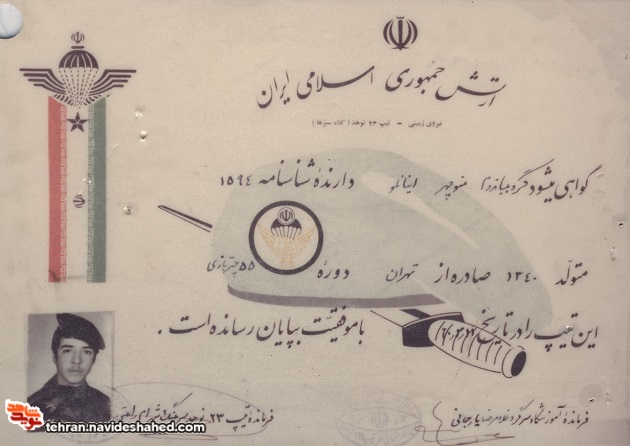 ارتش جمهوری اسلامی ایران
نیروی زمینی - تیپ ۲۳ نوهد (کلاه سبزها)
گواهی میشود گروهبانیکم منوچهر اینانلو دارندهٔ شناسنامه ۱۵۹٤
متولد ۱۳٤۰ صادره از تهران دورهٔ ۵۵ چتربازی
این تیپ را در تاریخ با موفقیت بپایان رسانده است.
فرمانده آموزشگاه سرگرد غلامرضا یارجانی
فرمانده تیپ ۲۳ نوهد سرهنگ
tehran.navideshahed.com